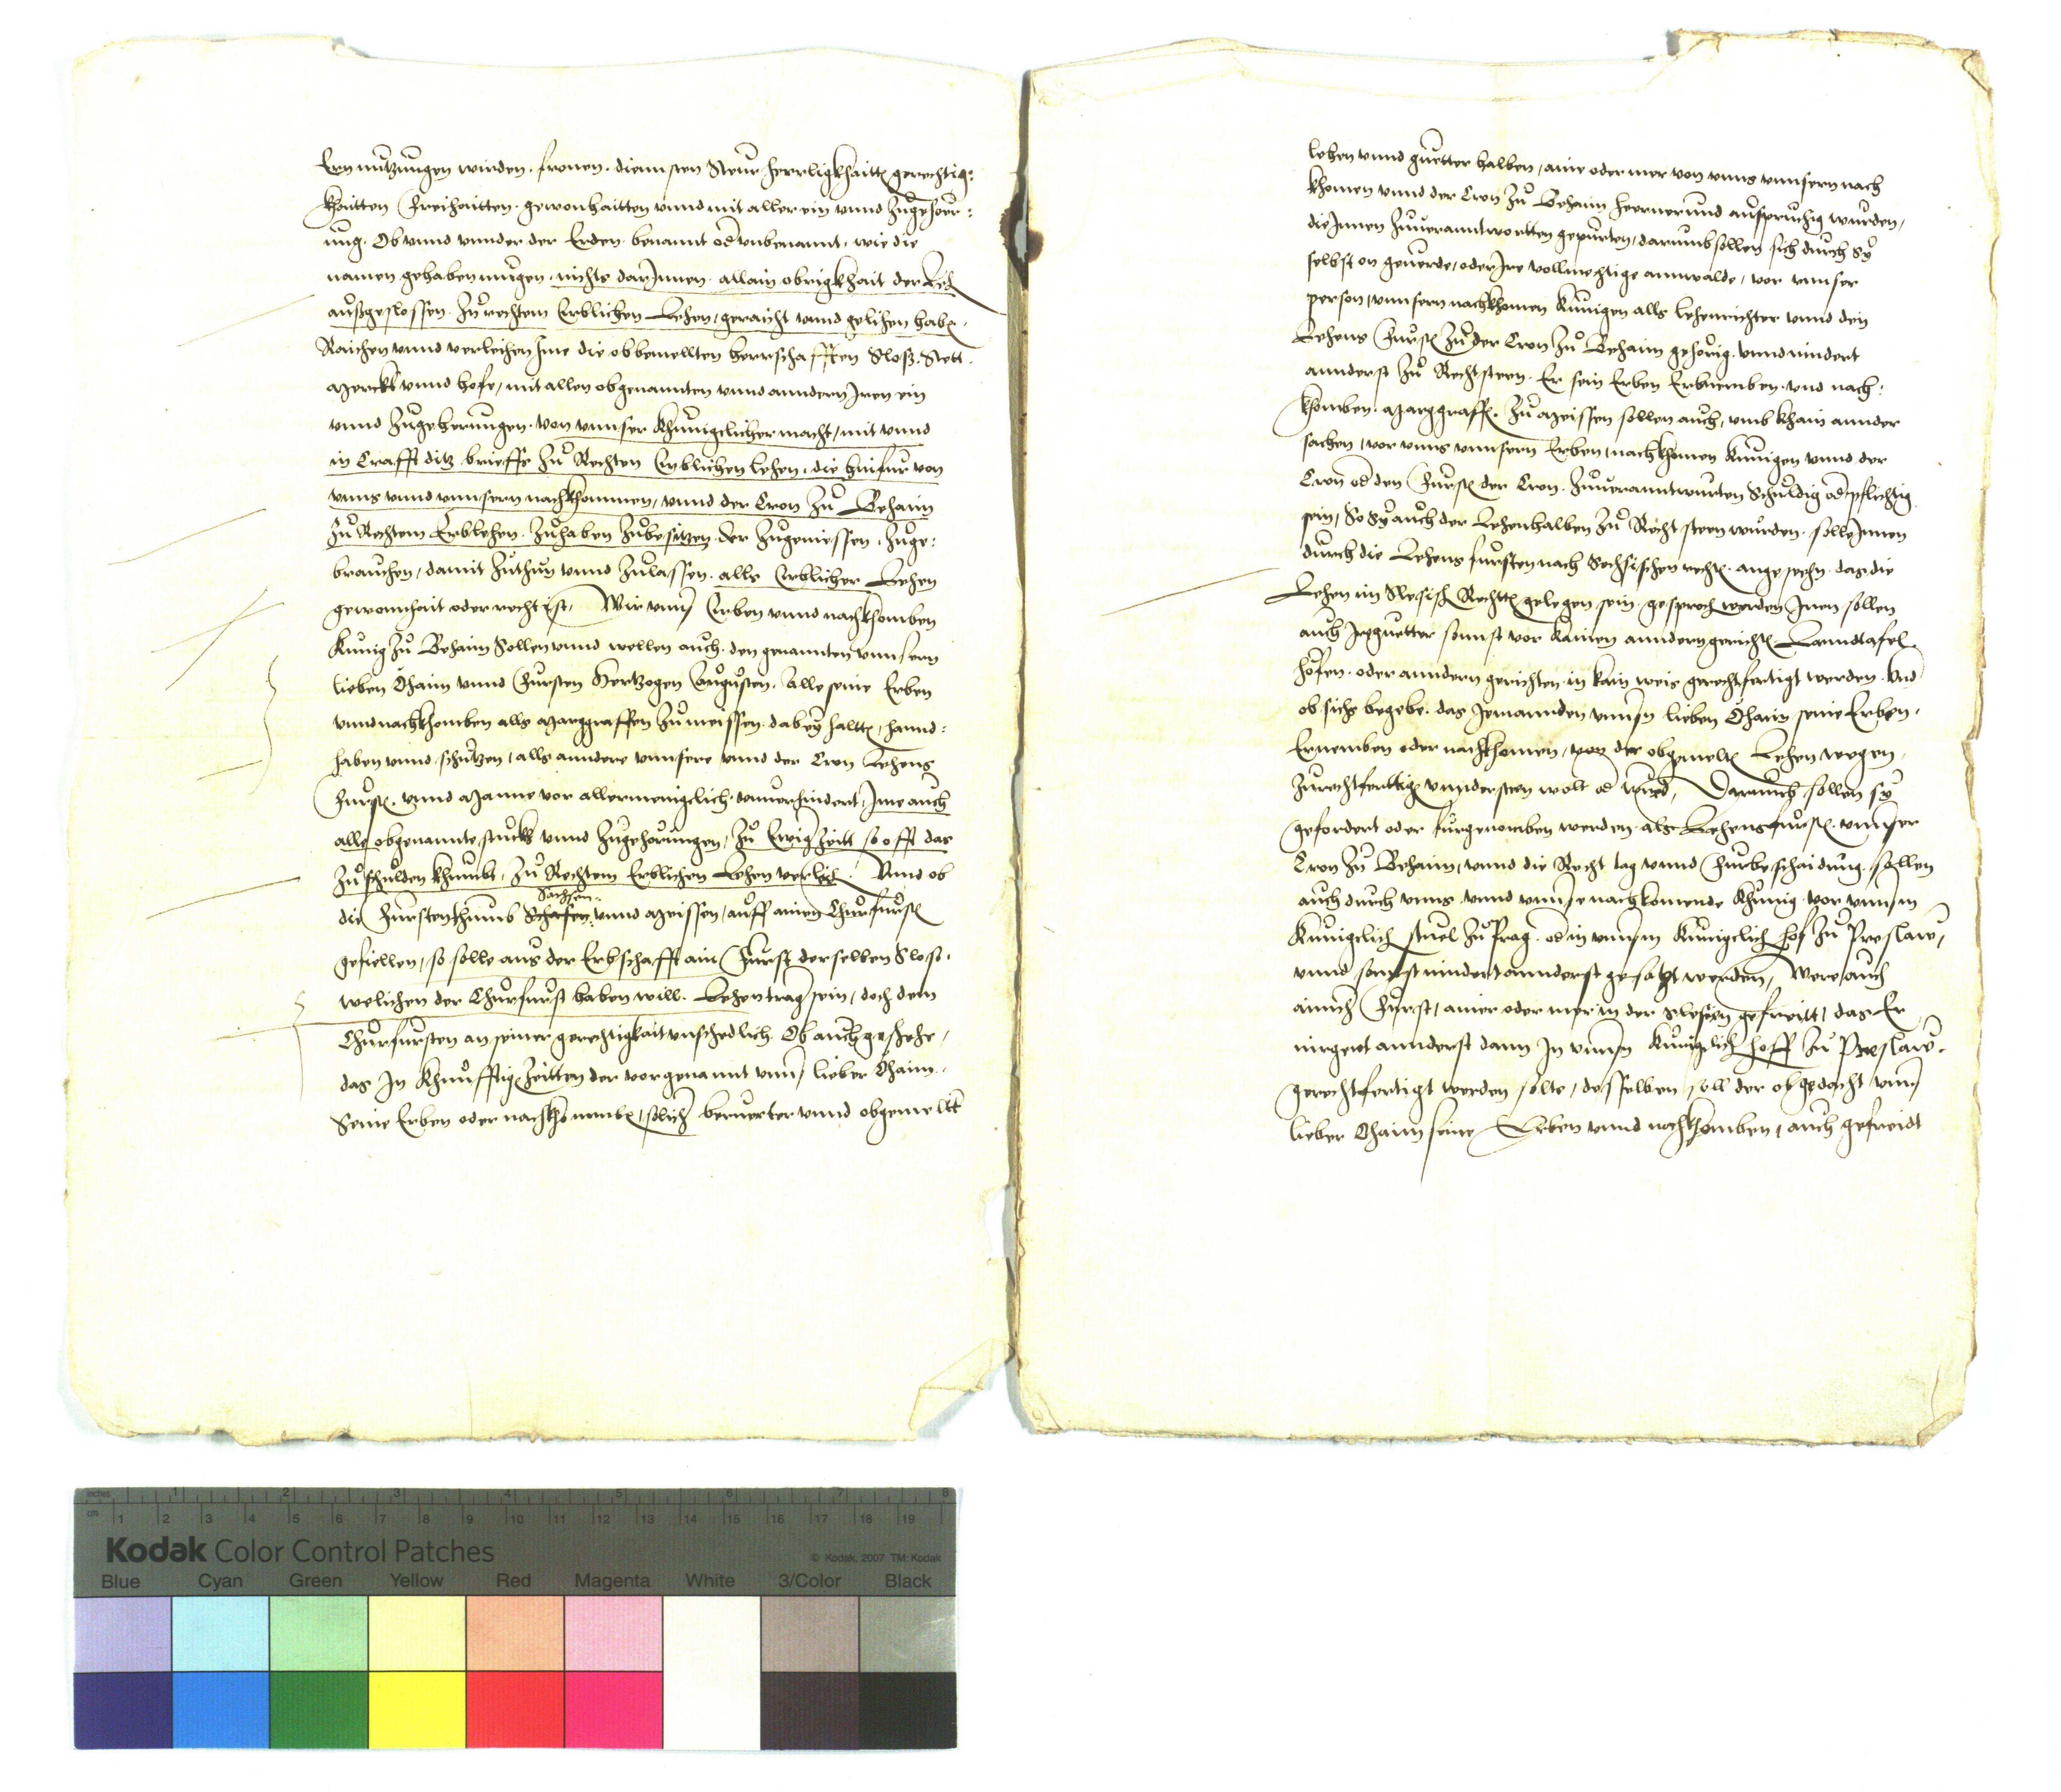 Ern nutzungen wirden. fronen. diennsten Steur herrligkhaitten gerechtig:
khaitten Freihaitten. gewonhaitten vnnd mit aller ein vnnd Zugehoer:
ung. Ob vnnd vnnder der Erden. benannt od vnbenannt. wie die
namen gehaben mugen. nichts darInnen. allain obrigkhait der Leh
außgeslossen. Zu rechtem Erblichen Lehen, geraicht vnnd gelihen haben.
Raichen vnnd verleihen Ime die obbemellten herrschafften Sloss. Stett.
Merckt vnnd hofe, mit allen obgenannten vnnd anndern Iren ein
vnnd Zugeherungen. von vnnser Khunigclicher macht, mit vnnd
in Crafft ditz brieffs Zu Rechten Erblichen lehen, die hinfur von
vnns vnnd vnnsern nachkhommen, vnnd der Cron Zu Behaim
Zu Rechtem Erblehen. Zuhaben Zubesitzen. der Zugeniessen. Zuge:
brauchen, damit Zuthun vnnd Zulassen. alls Erblicher Lehen
gewonnhait oder recht ist, Wir vnns Erben vnnd nachkhomben
Kunig Zu Behaim Sollen vnnd wellen auch. den genannten vnnsern
lieben Ohaim vnnd Fursten Hertzogen Augusten. Alle seine Erben
vnnd nachkhomben alls Marggraffen Zu meissen. dabey haltten, hannd:
haben vnnd schutzen, alls anndere vnnsere vnnd der Cron Lehens
Fursten. vnnd Manne vor allermenigclich vnuerhindert, Ime auch
alle obgenannte stuckh vnnd Zugehorungen, Zu Ewig Zeitt so offt das
Zu schulden khumbt, Zu Rechtem Erblichen Lehen verleih. Vnnd ob
die Furstenthumb Schafen Sachsen vnnd Meissen, auff ainen Churfursten
gefiellen, so solle aus der Erbschafft ain Furst derselben Sloss.
welichen der Churfurst haben will. Lehentrager sein, doch dem
Churfursten an seiner gerechtigkait vnschedlich. Ob auch geschehe,
das In Khunfftigen Zeitten der vorgenannt vnns lieber Ohaim.
Seine Erben oder nachkhommben, solicher beruerter vnnd obgemeltt
lehen vnnd guetter halben, aine oder mer von vnns vnnsern nach
khomen vnnd der Cron Zu Behaim hernner und ansprichig wurden,
die Innen Zuuerantwortten gepurten, darumb sollen sich durch Sy
selbst on geuerde, oder Ire vollmechtige annwalde, vor vnnser
person, vnnsern nachkhomen Kunigen alls lehenrichter vnnd den
Lehens Fursten Zu der Cron Zu Behaim gehorig. vnnd nindert
annderst Zu Recht steen. Er sein Erben Erbnemben. vnd nach:
khomben. Marggraffen Zu Meissen sollen auch, vmb khain annder
sachen, vor vnns vnnsern Erben, nachkhomen Kunigen vnnd der
Cron od den Fursten der Cron. Zuuerantwurten Schuldig od pflichtig
sein, So Sy auch der Lehenhalben Zu Recht steen wurden. solle Innen
durch die Lehens fursten nach Sechsischen rechten. angesechn. das die
Lehen im Slesisch Rechtten gelegen sein. gesproch werden Inen sollen
auch Ire guetter sonnst vor kainen anndern gerichten. Lanndtafel.
hofen. oder anndern gerichten. in kain weis gerechtfertigt werden. Vnd
ob sichs begebe. das Jemannden vnnsern lieben Ohaim seine Erben.
Ernemben oder nachkhomen, von der obgemelten Lehen wegen.
Zurechtferttigen vnndersteen wolt od wurd, Darumb sollen Sy
gefordert oder furgenomben werden. als Lehensfursten vnnser
Cron Zu Behaim, vnnd die Recht tag vnnd Furbeschaidung. sollen
auch durch vnns vnnd vnnser nachkomende Khunig. vor vnnsm
Kunigclich stuel Zu Prag. od in vnnsm Kunigclich hof Zu Preslaw,
vnnd sonnst nindert annderst gesatzt werden, Were auch
ainich Furst, ainer oder mer in der Slesien gefreitt, das Er
nirgent annderst dann In vnnsn Kunigclich hoff Zu Preslaw.
gerechtfertigt werden solte, desselben soll der obgedacht vnns
lieber Ohaim seine Erben vnnd nachkhomben, auch gefreidt
Kodak Color Control Patches
© Kodak, 2007 TM: Kodak
Blue Cyan Green Yellow Red Magenta White 3/Color Black